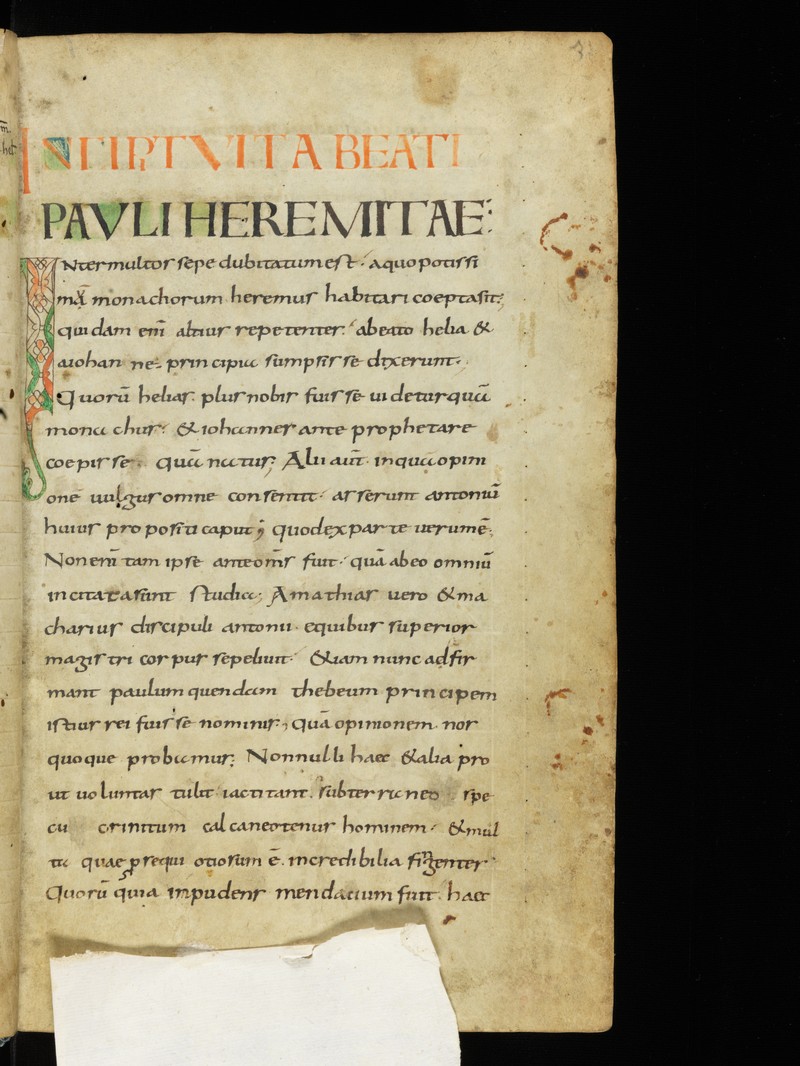 3
INCIPIT VITA BEATI
PAVLI HEREMITAE:
INter multos sepe dubitatum est· a quo potissi
mū monachorum heremus habitari coepta sit;
quidam eni͞ altius repetentes· a beato helia &
a iohanne· principia sumpsisse dixerunt·
Quorū helias· plus nobis fuisse uidetur quā
monachus· & iohannes ante prophetare
coepisse· quā natus; Alii aut̄· in qua opini
one uulgus omne consentit· asserunt antoniū
huius propositi caput; quod ex parte uerum ē·
Non eni͞ tam ipse ante om̄s fuit· quā ab eo omniū
incitata sunt studia; Amathas uero & ma
charius discipuli antonii· e quibus superior
magistri corpus sepeliuit· &iam nunc adfir
mant paulum quendam thebeum principem
istius rei fuisse nominis; Quā opinionem nos
quoque probamus; Nonnulli haec & alia pro
ut uoluntas tulit iactitant· subterraneo spe
cu crinitum calcaneotenus hominem· & mul
ta quae ꝓsequi otiosum ē· incredibilia fingentes·
Quorū quia inpudens mendatium fuit· haec